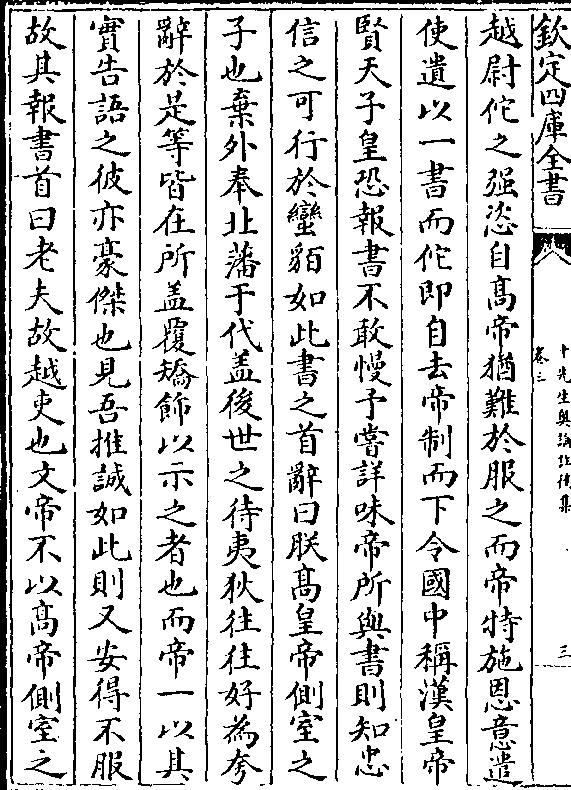 欽定四庫全書
十先生奧論註後集
卷三
三
越尉佗之强恣自髙帝猶難於服之而帝特施恩意遣
使遺以一書而佗即自去帝制而下令國中稱漢皇帝
賢天子皇恐報書不敢慢予嘗詳味帝所與書則知忠
信之可行於蠻貊如此書之首辭曰朕髙皇帝側室之
子也棄外奉北藩于代盖後世之待夷狄往往好為夸
辭於是等皆在所盖覆矯飾以示之者也而帝一以其
實告語之彼亦豪傑也見吾推誠如此則又安得不服
故其報書首曰老夫故越吏也文帝不以髙帝側室之